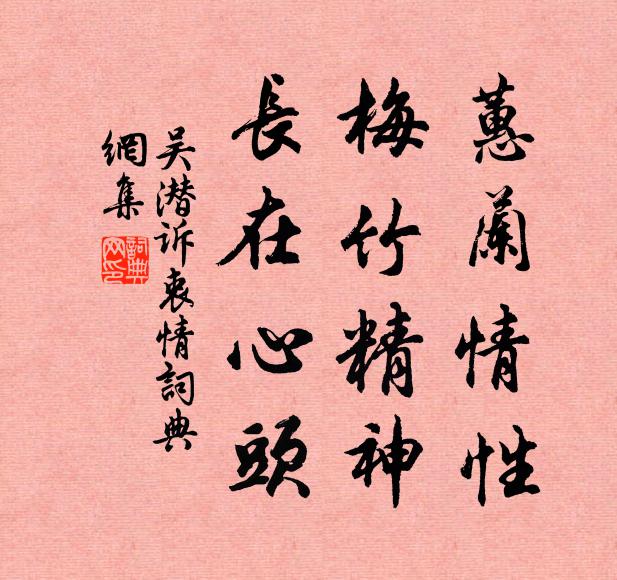 蕙蘭情性
梅竹精神
長在心頭
吴潜诉衷情詞典
網集
詞典網印